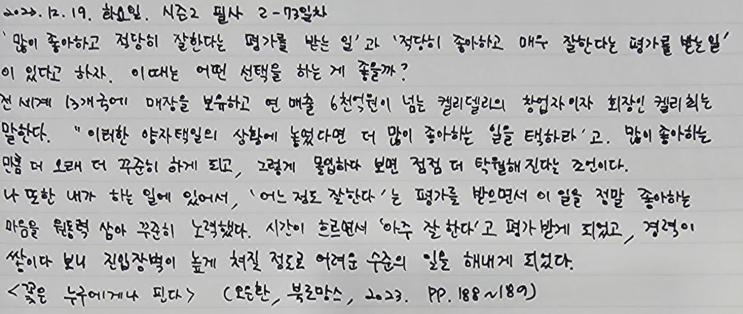 2023. 12. 19. 화요일. 시즌2 필사 2-73일차
'많이 좋아하고 적당히 잘한다는 평가를 받는 일'과 '적당히 좋아하고 매우 잘한다는 평가를 받는 일'
이 있다고 하자. 이때는 어떤 선택을 하는 게 좋을까?
전 세계 13개국에 매장을 보유하고 연 매출 6천억원이 넘는 켈리델리의 창업자이자 회장인 켈리 최는
말한다. "이러한 양자택일의 상황에 놓였다면 더 많이 좋아하는 일을 택하라'고. 많이 좋아하는
만큼 더 오래 더 꾸준히 하게 되고, 그렇게 몰입하다 보면 점점 더 탁월해진다는 조언이다.
나 또한 내가 하는 일에 있어서, '어느 정도 잘한다'는 평가를 받으면서 이 일을 정말 좋아하는
마음을 원동력 삼아 꾸준히 노력했다. 시간이 흐르면서 '아주 잘한다'고 평가받게 되었고, 경력이
쌓이다 보니 진입장벽이 높게 쳐질 정도로 어려운 수준의 일을 해내게 되었다.
<꽃은 누구에게나 핀다> (오은환, 북로망스, 2023. PP. 188~189)